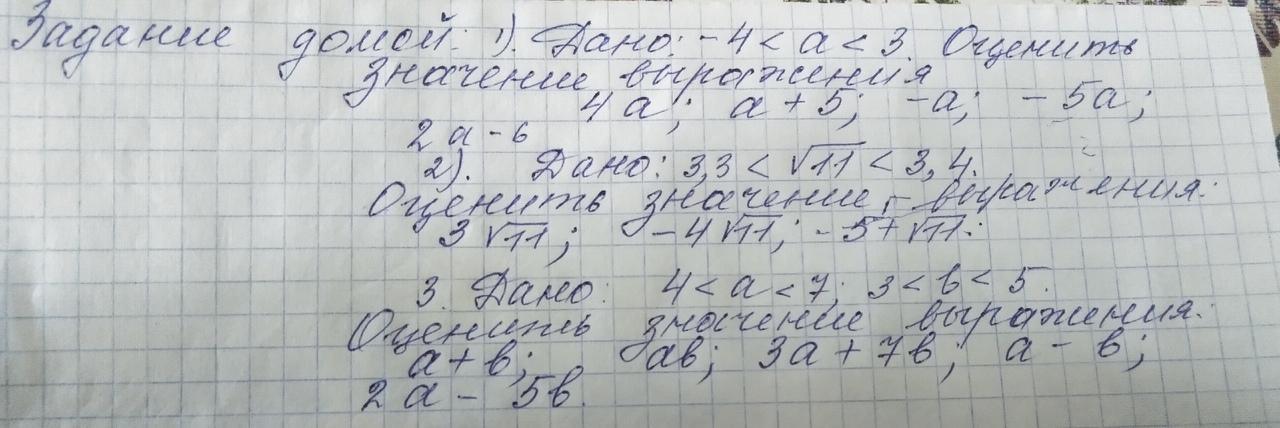 Задание домой: 1). Дано: -4 < a < 3. Оценить
значение выражения
4a; a + 5; -a; - 5a;
2a - 6
2). Дано: 3,3 < √11 < 3,4.
Оценить значение выражения:
3√11; -4√11; -5+√11.
3. Дано: 4 < a < 7; 3 < b < 5.
Оценить значение выражения:
a + b; ab; 3a + 7b; a - b;
2a - 5b.